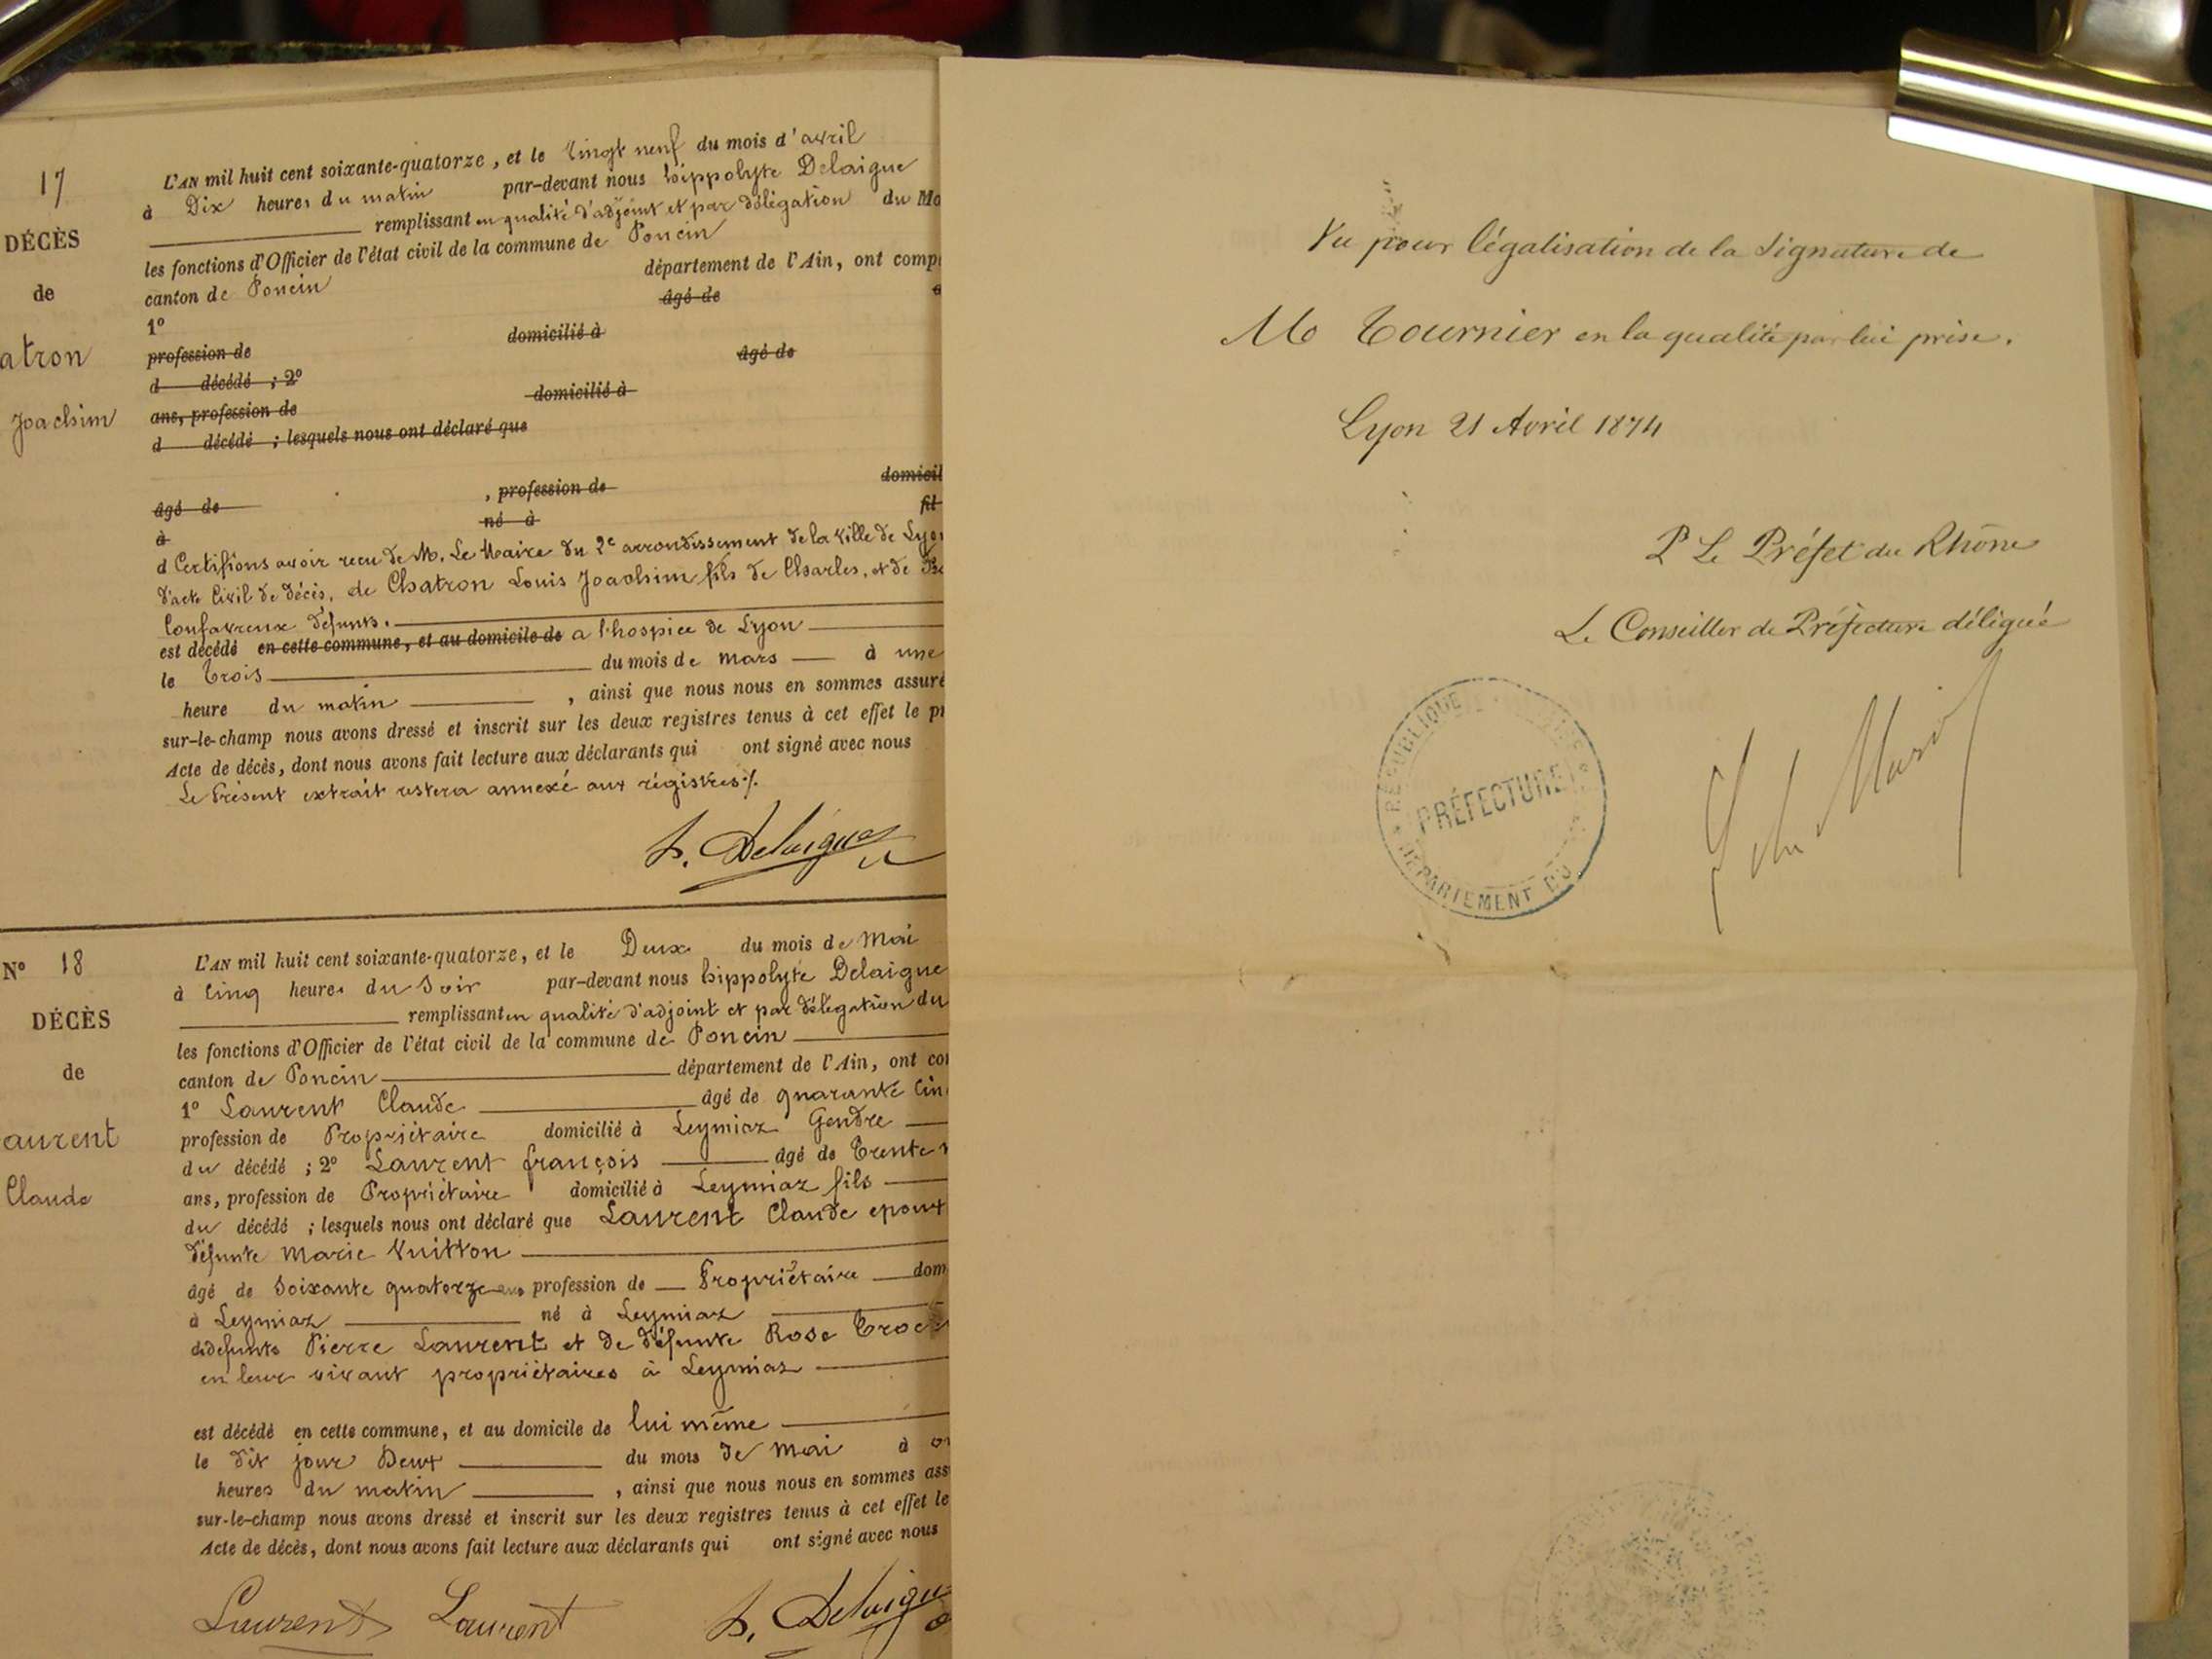 17
DÉCÈS
de
atron
Joachim
L'AN mil huit cent soixante-quatorze, et le Vingt neuf du mois d'avril
à Dix heures du matin par-devant nous hippolyte Delaigue
remplissant en qualité d'adjoint et par délégation du Ma
les fonctions d'Officier de l'état civil de la commune de Poncin
canton de Poncin département de l'Ain, ont comp
1º âgé de
profession de domicilié à
d décédé ; 2º âgé de
ans, profession de domicilié à
d décédé ; lesquels nous ont déclaré que
âgé de , profession de domicil
à né à fil
d Certifions avoir reçu de M. Le Maire du 2e arrondissement de la Ville de Lyon
d'acte Civil de décès, de Chatron Louis Joachim fils de Charles, et de
Confavreux défunts.
est décédé en cette commune, et au domicile de a l'hospice de Lyon
le trois du mois de mars à une
heure du matin , ainsi que nous nous en sommes assuré
sur-le-champ nous avons dressé et inscrit sur les deux registres tenus à cet effet le pr
Acte de décès, dont nous avons fait lecture aux déclarants qui ont signé avec nous
Le Présent extrait restera annexé aux régistres./.
h. Delaigue
Nº 18
DÉCÈS
de
aurent
Claude
L'AN mil huit cent soixante-quatorze, et le Deux du mois de Mai
à Cinq heures du Soir par-devant nous hippolyte Delaigue
remplissant en qualité d'adjoint et par délégation du
les fonctions d'Officier de l'état civil de la commune de Poncin
canton de Poncin département de l'Ain, ont co
1º Laurent Claude âgé de quarante Cin
profession de Propriétaire domicilié à Leymiaz Gendre
du décédé ; 2º Laurent françois âgé de Trente
ans, profession de Propriétaire domicilié à Leymiaz fils
du décédé ; lesquels nous ont déclaré que Laurent Claude epoux
défunte Marie Vuitton
âgé de Soixante quatorze ans profession de Propriétaire dom
à Leymiaz né à Leymiaz
de defunts Pierre Laurent et de défunte Rose Troc
en leur vivant propriétaires à Leymiaz
est décédé en cette commune, et au domicile de lui même
le dit jour Deux du mois de Mai à
heures du matin , ainsi que nous nous en sommes ass
sur-le-champ nous avons dressé et inscrit sur les deux registres tenus à cet effet le
Acte de décès, dont nous avons fait lecture aux déclarants qui ont signé avec nous
Laurent Laurent h. Delaigue
Vu pour légalisation de la Signature de
Mo Tournier en la qualité par lui prise.
Lyon 21 Avril 1874
P Le Préfet du Rhône
Le Conseiller de Préfecture délégué
RÉPUBLIQUE
PRÉFECTURE
DÉPARTEMENT DU